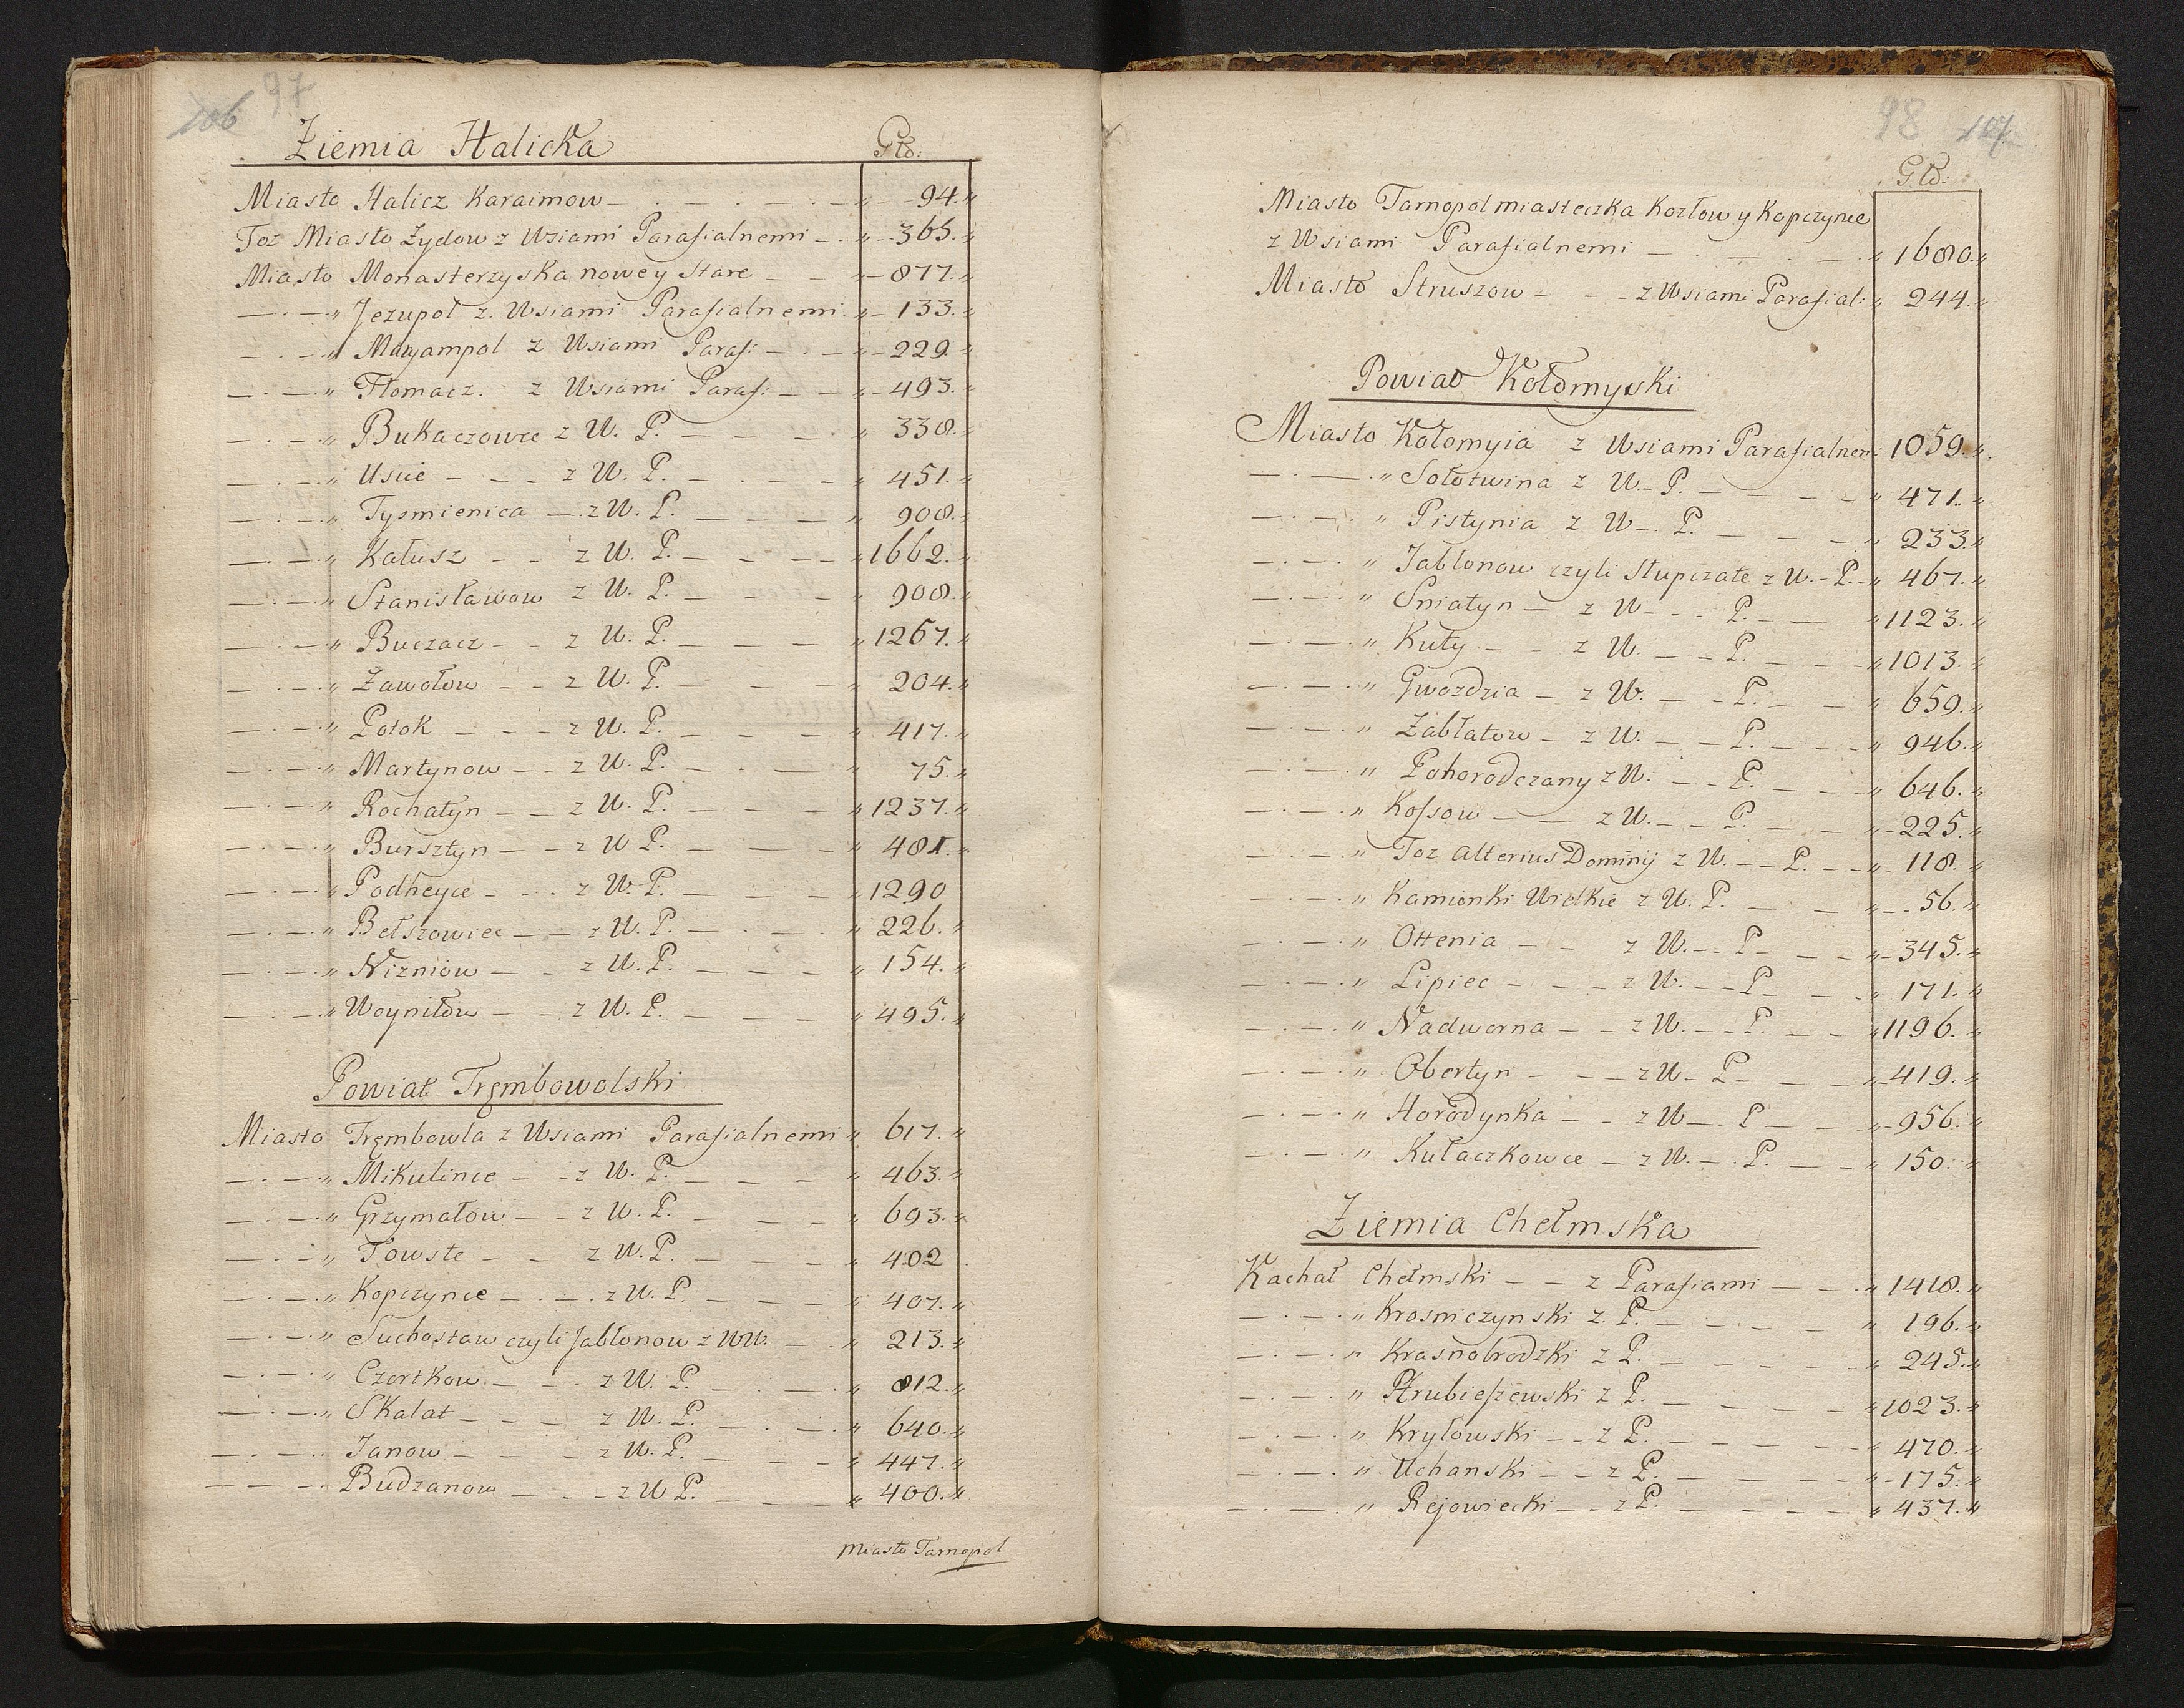 106 97
Ziemia Halicka Głb:
Miasto Halicz Karaimow — . — . — . — " — 94. "
Toz Miasto Zydow z Wsiami Parafialnemi — " — 365. "
Miasto Monasterzyska nowe y Stare — — " — 877. "
— . — " Jezupol z. Wsiami Parafialnemi " — 133. "
— . — " Maryampol z Wsiami Paraf: — . — " — 229. "
— . — " Tłomacz. z Wsiami Paraf: — — " — 493. "
— . — " Bukaczowce z W. P. — — — . " 338. "
— . — " Uscie — — — z W. P. — . — — " 451. "
— . — " Tysmienica — . z W. P. — — — " 908. "
— . — " Kałusz — — z W. P. — — — " 1662. "
— . — " Stanisławow z W. P. — — — " 908. "
— . — " Buczacz — — z W. P. — — — " 1267. "
— . — " Zawołow — — z W. P. — — — " 204. "
— . — " Potok — — — z W. P. — — — " 417. "
— . — " Martynow — — z W. P. — . — " 75. "
— . — " Rochatyn — — z W. P. — — — " 1237. "
— . — " Bursztyn — — z W P. — — — " 481. "
— . — " Podheyce — . . z W. P. — — — " 1290
— . — " Bełszowiec — — z W. P. — . — . " 226. "
— . — " Nizniow — — z W. P. — — — " 154. "
— . — " Woyniłow — — z W. P. — — — " 495. "
Powiat Trembowolski
Miasto Trembowla z Wsiami Parafialnemi " 617. "
— . — " Mikulince — — z W. P. — — — " 463. "
— . — " Grzymałow — — z W. P. — — — " 693. "
— . — " Towste — — z W. P. — — — " 402
— . — " Kopczynce — . — . z W. P. — — — " 407. "
— . — " Suchostaw czyli Jabłonow z WW. — . " 213. "
— . — " Czortkow — — . z W. P. — . — . " 812. "
— . — " Skałat — — — z W. P. — . — . " 640. "
— . — . Janow — — — z W. P. — — — " 447. "
— — — . Budzanow — — — z W P. — — — " 400. "
Miasto Tarnopol
98 107
Głb:
Miasto Tarnopol miasteczka Kozłow y Kopczynce
z Wsiami Parafialnemi — . — . — " 1680. "
Miasto Struszow — — — z Wsiami Parafial: " 244. "
Powiat Kołomyski
Miasto Kołomyia z Wsiami Parafialnem: 1059. "
— . — . " Sołotwina z W. — P. — — — — " 471. "
— . — . " Pistynia z W — . P. — — — " 233 "
— . — . " Jabłonow czyli Stupczate z W. — P. — " 467. "
— . — . " Sniatyn — z W — . . P. — — " 1123. "
— . — . " Kuty — — z W. — — P. — — " 1013. "
— . — . " Gwozdzia — z W. — — P. — — " 659. "
— . — . " Zabłatow — z W. — — P. — . — " 946. "
— . — . " Bohorodczany z W. — — P. — — — " 646. "
— . — . " Kossow — — z W. — — P. — — " — 225. "
— . — . " Toz alterius Dominij z W. — — P. — — " 118. "
— . — . " Kamionki Wielkie z W. P. — — " — . 56. "
— . — . " Ottenia — — z W. — . P — — — " — 345. "
— . — . " Lipiec — — — z W. — — P — — — " 171. "
— . — . " Nadworna — — z W. — — P. — — " 1196. "
— . — . " Obertyn — — — z W — P — — — " — 419. "
— . — . " Horodynka — — z W — . P — — — " — 956. "
— . — . " Kułaczkowce — z W. — . P. — — " 150. "
Ziemia Chełmska
Kachał Chełmski — — z Parafiami — — . " 1418. "
— . — . " Krosniczynski z. P. — . — . — " 196. "
— . — . " Krasnobrodzki z P. — — — — " 245. "
— . — . " Hrubieszewski z P. — — — — " 1023. "
— . — . " Kryłowski — — z P. — — — — " 470. "
— . — . " Uchanski — — z P. — — — — " — 175. "
— . — . " Rejowiecki — — z P. — — — — " 437. "